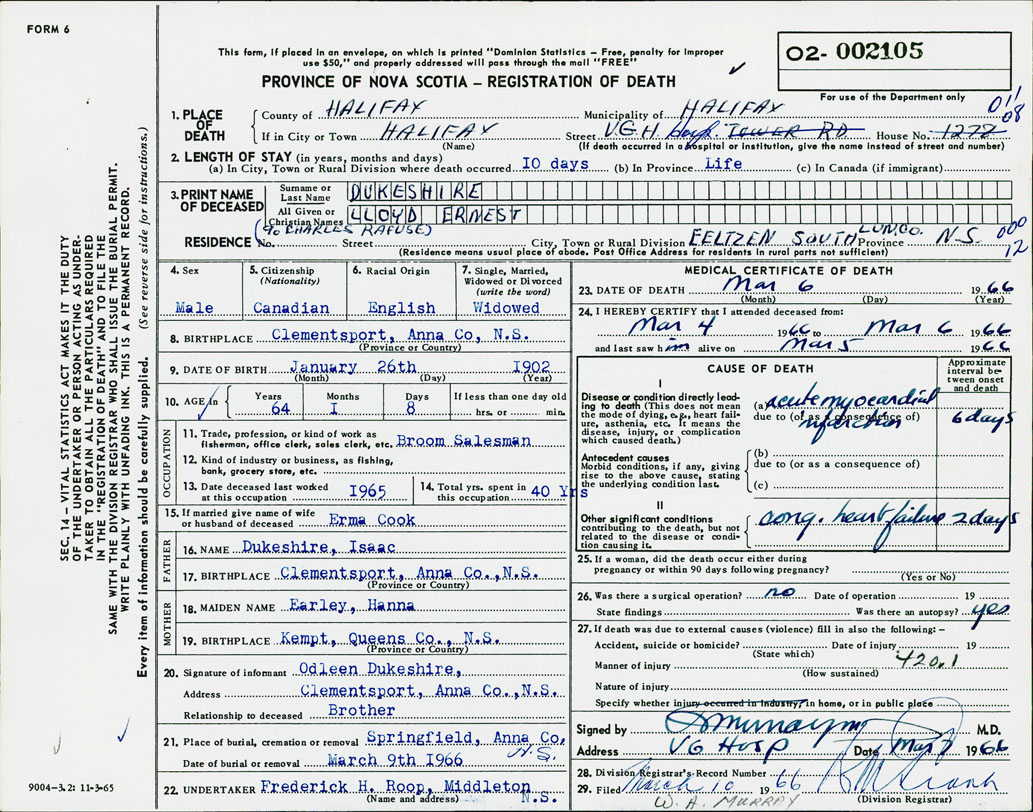 FORM 6
This form, if placed in an envelope, on which is printed "Dominion Statistics – Free, penalty for improper
use $50," and properly addressed will pass through the mail "FREE"
PROVINCE OF NOVA SCOTIA – REGISTRATION OF DEATH
02- 002105
For use of the Department only
011
08
1. PLACE OF DEATH
County of HALIFAX Municipality of HALIFAX
If in City or Town HALIFAX Street V.G.H. Hosp. TOWER RD House No. 1272
(Name) (If death occurred in a hospital or institution, give the name instead of street and number)
2. LENGTH OF STAY (in years, months and days)
(a) In City, Town or Rural Division where death occurred 10 days (b) In Province Life (c) In Canada (if immigrant)
3. PRINT NAME OF DECEASED
Surname or Last Name DUKESHIRE
All Given or Christian Names LLOYD ERNEST
(% CHARLES RAFUSE)
RESIDENCE No. Street City, Town or Rural Division EELTZEN SOUTH LUN CO. Province N.S.
000
12
(Residence means usual place of abode. Post Office Address for residents in rural parts not sufficient)
4. Sex
Male
5. Citizenship
(Nationality)
Canadian
6. Racial Origin
English
7. Single, Married, Widowed or Divorced
(write the word)
Widowed
8. BIRTHPLACE Clementsport, Anna Co, N.S.
(Province or Country)
9. DATE OF BIRTH January 26th 1902
(Month) (Day) (Year)
10. AGE in
Years Months Days If less than one day old
64 I 8 hrs. or min.
OCCUPATION
11. Trade, profession, or kind of work as
fisherman, office clerk, sales clerk, etc. Broom Salesman
12. Kind of industry or business, as fishing,
bank, grocery store, etc.
13. Date deceased last worked
at this occupation I965
14. Total yrs. spent in
this occupation 40 Yrs
15. If married give name of wife
or husband of deceased Erma Cook
FATHER
16. NAME Dukeshire, Isaac
17. BIRTHPLACE Clementsport, Anna Co.,N.S.
(Province or Country)
MOTHER
18. MAIDEN NAME Earley, Hanna
19. BIRTHPLACE Kempt, Queens Co., N.S.
(Province or Country)
20. Signature of informant Odleen Dukeshire,
Address Clementsport, Anna Co.,N.S.
Relationship to deceased Brother
21. Place of burial, cremation or removal Springfield, Anna Co.
N.S.
Date of burial or removal March 9th 1966
22. UNDERTAKER Frederick H. Roop, Middleton
(Name and address) N.S.
MEDICAL CERTIFICATE OF DEATH
23. DATE OF DEATH Mar 6 1966
(Month) (Day) (Year)
24. I HEREBY CERTIFY that I attended deceased from:
Mar 4 1966 to Mar 6 1966
and last saw him alive on Mar 5 1966
CAUSE OF DEATH
Approximate interval between onset and death
I
Disease or condition directly leading to death (This does not mean the mode of dying, e.g., heart failure, asthenia, etc. It means the disease, injury, or complication which caused death.)
(a) acute myocardial
due to (or as a consequence of) infarction 6 days
Antecedent causes
Morbid conditions, if any, giving rise to the above cause, stating the underlying condition last.
(b)
due to (or as a consequence of)
(c)
II
Other significant conditions contributing to the death, but not related to the disease or condition causing it.
cong. heart failure 2 days
25. If a woman, did the death occur either during
pregnancy or within 90 days following pregnancy?
(Yes or No)
26. Was there a surgical operation? no Date of operation 19
State findings Was there an autopsy? yes
27. If death was due to external causes (violence) fill in also the following: –
Accident, suicide or homicide? Date of injury 19
(State which)
420.1
Manner of injury
(How sustained)
Nature of injury
Specify whether injury occurred in industry, in home, or in public place
Signed by M.D.
Address VG HOSP Date Mar 7 1966
28. Division Registrar's Record Number
29. Filed March 10 1966
(Division Registrar)
W. A. MURRAY
SEC. 14 – VITAL STATISTICS ACT MAKES IT THE DUTY
OF THE UNDERTAKER OR PERSON ACTING AS UNDER-
TAKER TO OBTAIN ALL THE PARTICULARS REQUIRED
IN THE "REGISTRATION OF DEATH" AND TO FILE THE
SAME WITH THE DIVISION REGISTRAR WHO SHALL ISSUE THE BURIAL PERMIT.
WRITE PLAINLY WITH UNFADING INK. THIS IS A PERMANENT RECORD.
Every item of information should be carefully supplied. (See reverse side for instructions.)
9004-3.2: 11-3-65